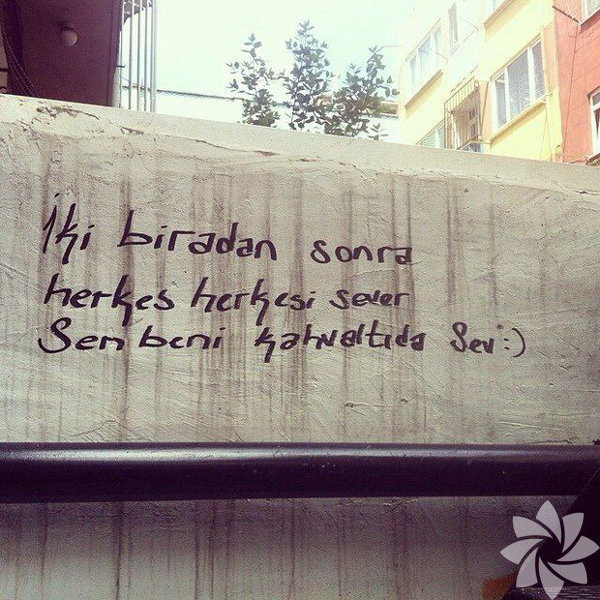 İki biradan sonra
herkes herkesi sever
Sen beni kahvaltıda sev :)